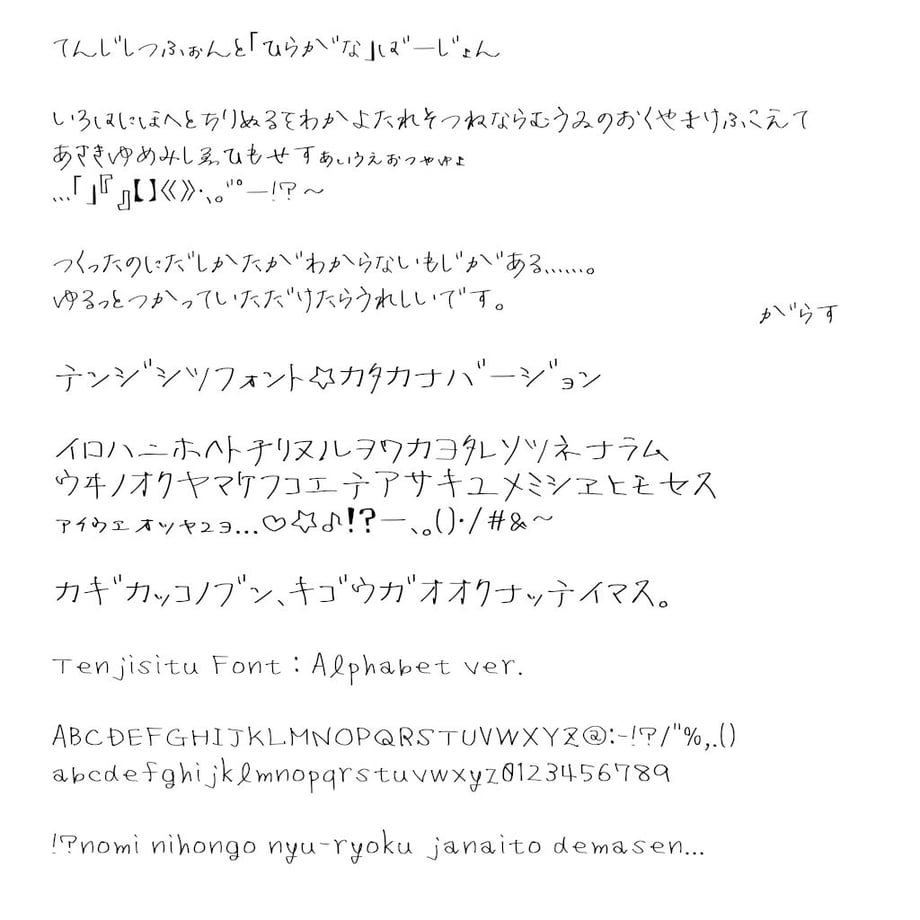 てんじしつふぉんと「ひらがな」ばーじょん
いろはにほへとちりぬるをわかよたれそつねならむうゐのおくやまけふこえて
あさきゆめみしゑひもせすぁぃぅぇぉっゃゅょ
…「」『』【】《》・、。゛゜ー!?～
つくったのにだしかたがわからないもじがある……。
ゆるっとつかっていただけたらうれしいです。
がらす
テンジシツフォント☆カタカナバージョン
イロハニホヘトチリヌルヲワカヨタレソツネナラム
ウヰノオクヤマケフコエテアサキユメミシヱヒモセス
ァィゥェォッャュョ…♡☆♪!?ー、。()・/#&～
カギカッコノブン、キゴウガオオクナッテイマス。
Tenjisitu Font：Alphabet ver.
ABCDEFGHIJKLMNOPQRSTUVWXYZ@:-!?/"%,.()
abcdefghijklmnopqrstuvwxyz0123456789
!?nomi nihongo nyu-ryoku janaito demasen...